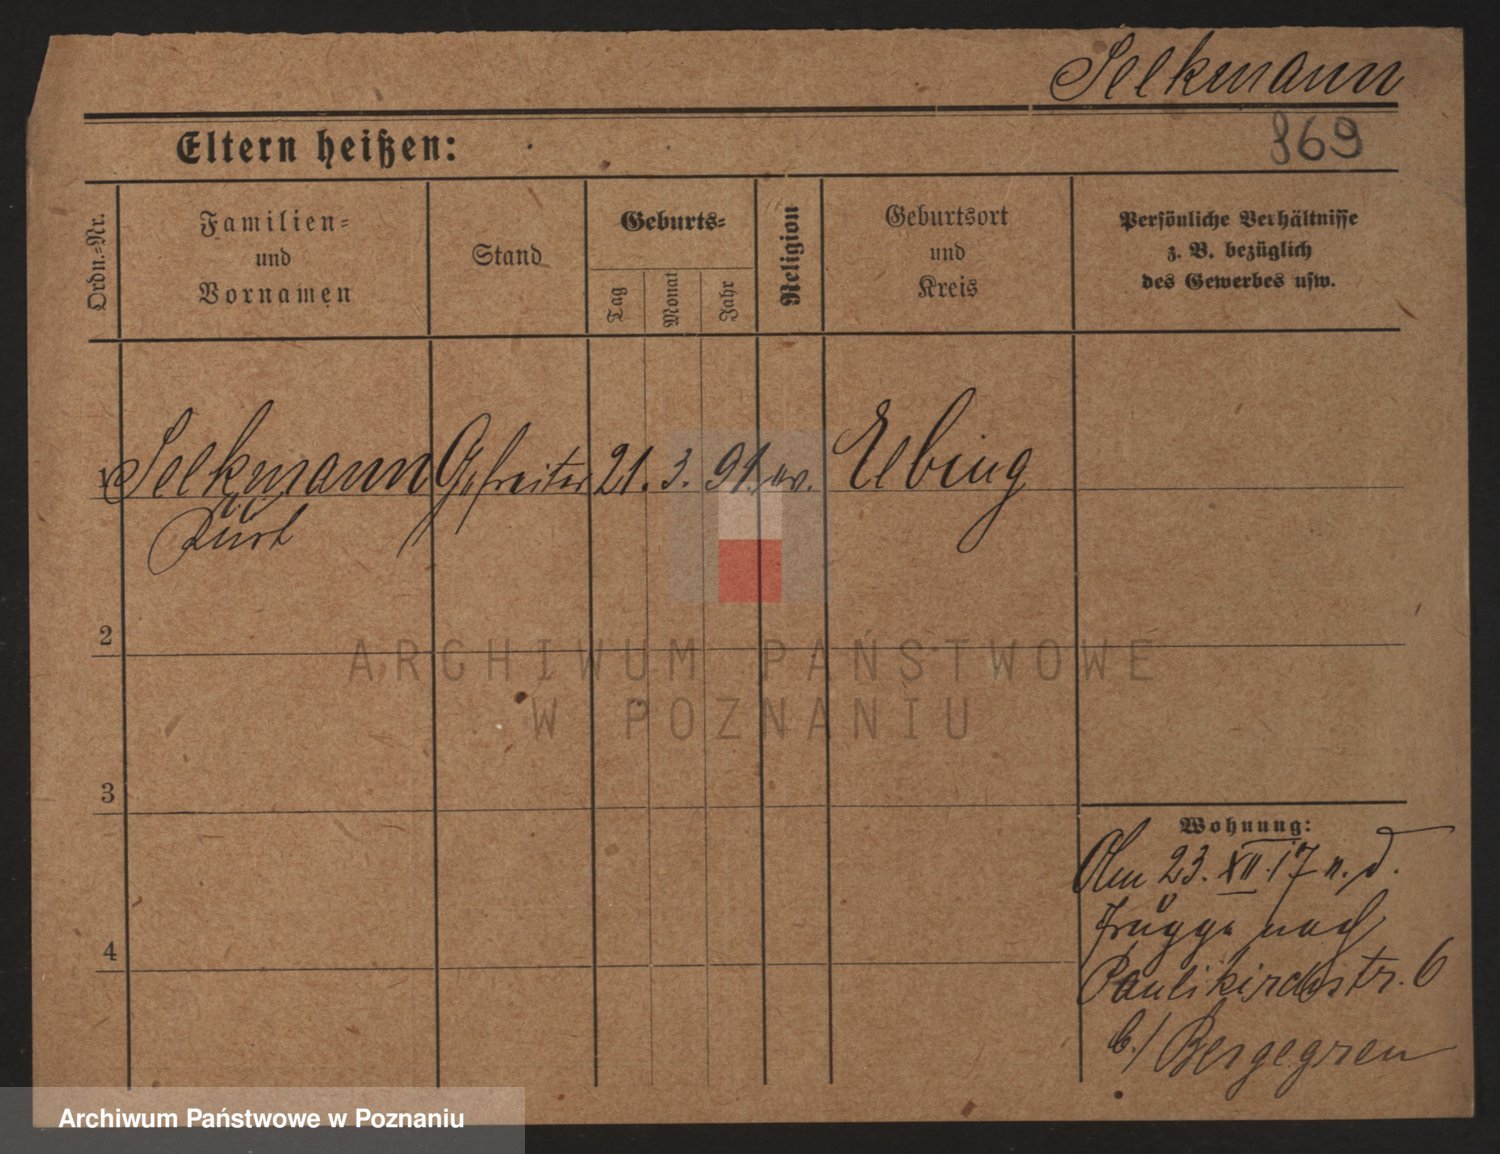 Selkmann
869
Eltern heißen:
Ordn.-Nr.
Familien-
und
Vornamen
Stand
Geburts-
Tag
Monat
Jahr
Religion
Geburtsort
und
Kreis
Persönliche Verhältnisse
z. B. bezüglich
des Gewerbes usw.
1 Selkmann Gefreiter 21. 3. 91. ev. Elbing
Kurt
2
3
4
Wohnung:
23. XII. 17 n. d.
nach
Paulikirchstr. 6
b./ Bergegren
ARCHIWUM PAŃSTWOWE
W POZNANIU
Archiwum Państwowe w Poznaniu